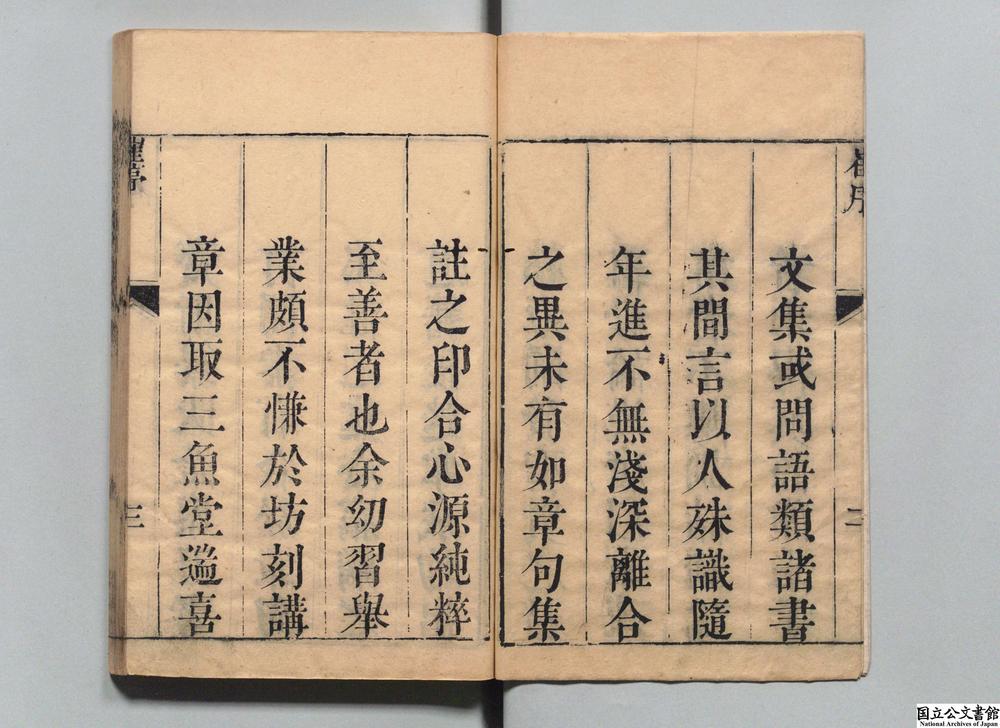 崔序
文集或問語類諸書
其間言以人殊識隨
年進不無淺深離合
之異未有如章句集
二
註之印合心源純粹
至善者也余幼習舉
業頗不慊於坊刻講
章因取三魚堂
喜
三
国立公文書館
National Archives of Japan